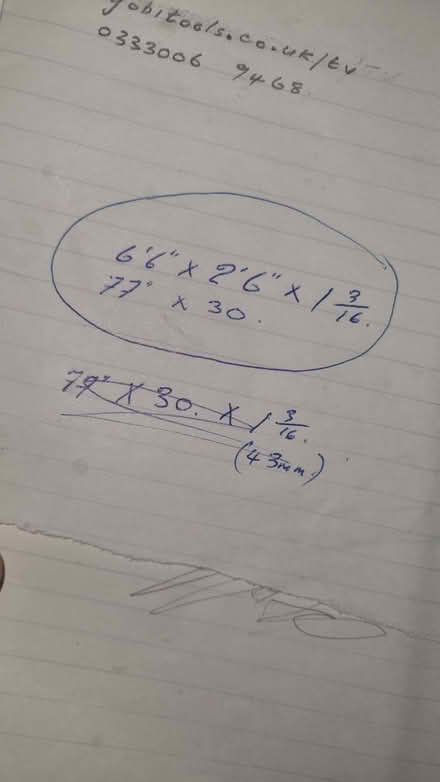 yobitools.co.uk/tv
0333006 9468
6'6" x 2'6" x 1 3/16.
77" x 30.
79" x 30. x 1 3/16.
(43mm.)